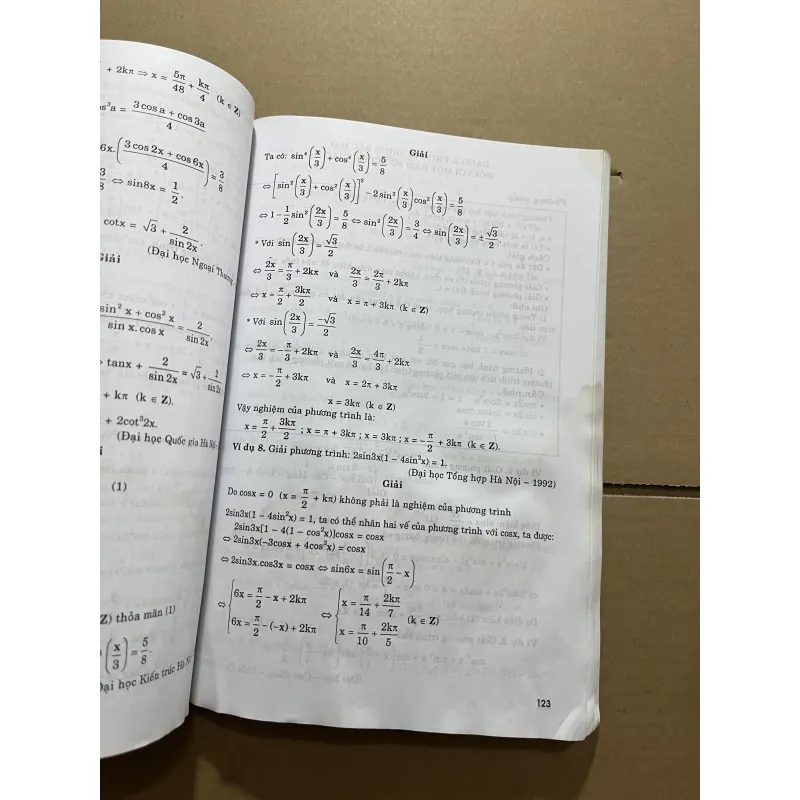 + 2kπ ⇒ x = 5π/48 + kπ/4 (k ∈ Z)
os³a = (3 cos a + cos 3a)/4
6x.((3 cos 2x + cos 6x)/4) = 3/8
3/8 ⇔ sin8x = 1/2.
cotx = √3 + 2/sin 2x.
(Đại học Ngoại Thương -
Giải
(sin² x + cos² x)/(sin x. cos x) = 2/sin 2x.
tanx + 2/sin 2x = √3 + 1/sin2x
+ kπ (k ∈ Z).
+ 2cot³2x.
(Đại học Quốc gia Hà Nội -
i
(1)
Z) thỏa mãn (1)
(x/3) = 5/8.
Đại học Kiến trúc Hà Nội
Giải
Ta có: sin⁴(x/3) + cos⁴(x/3) = 5/8
⇔ [sin²(x/3) + cos²(x/3)]² − 2 sin²(x/3) cos²(x/3) = 5/8
⇔ 1 − 1/2 sin²(2x/3) = 5/8 ⇔ sin²(2x/3) = 3/4 ⇔ sin(2x/3) = ± √3/2.
* Với sin(2x/3) = √3/2
⇔ 2x/3 = π/3 + 2kπ và 2x/3 = 2π/3 + 2kπ
⇔ x = π/2 + 3kπ/2 và x = π + 3kπ (k ∈ Z)
* Với sin(2x/3) = −√3/2
⇔ 2x/3 = −π/3 + 2kπ và 2x/3 = 4π/3 + 2kπ
⇔ x = −π/2 + 3kπ và x = 2π + 3kπ
x = 3kπ (k ∈ Z)
Vậy nghiệm của phương trình là:
x = π/2 + 3kπ/2 ; x = π + 3kπ ; x = 3kπ ; x = −π/2 + 3kπ (k ∈ Z).
Ví dụ 8. Giải phương trình: 2sin3x(1 − 4sin²x) = 1.
(Đại học Tổng hợp Hà Nội – 1992)
Giải
Do cosx = 0 (x = π/2 + kπ) không phải là nghiệm của phương trình
2sin3x(1 − 4sin²x) = 1, ta có thể nhân hai vế của phương trình với cosx, ta được:
2sin3x[1 − 4(1 − cos²x)]cosx = cosx
⇔ 2sin3x(−3cosx + 4cos³x) = cosx
⇔ 2sin3x.cos3x = cosx ⇔ sin6x = sin(π/2 − x)
⇔ { 6x = π/2 − x + 2kπ ⇔ { x = π/14 + 2kπ/7 (k ∈ Z)
6x = π/2 − (−x) + 2kπ x = π/10 + 2kπ/5
123